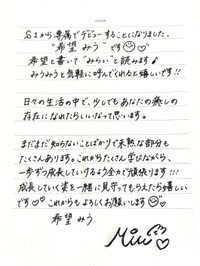 S1から専属でデビューすることになりました、
"希望 みう" です
希望と書いて "みらい" と読みます♪
みうみうと気軽に呼んでくれると嬉しいです!!
日々の生活の中で、少しでもあなたの癒しの
存在になれたらいいなって思います。
まだまだ知らないことばかりで未熟な部分も
たくさんあります。これからたくさん学びながら、
一歩ずつ成長していけるよう全力で頑張ります!!!
成長していく姿を一緒に見守ってもらえたら嬉しい
です♡♡ これからよろしくお願いします!!
希望 みう
Miu